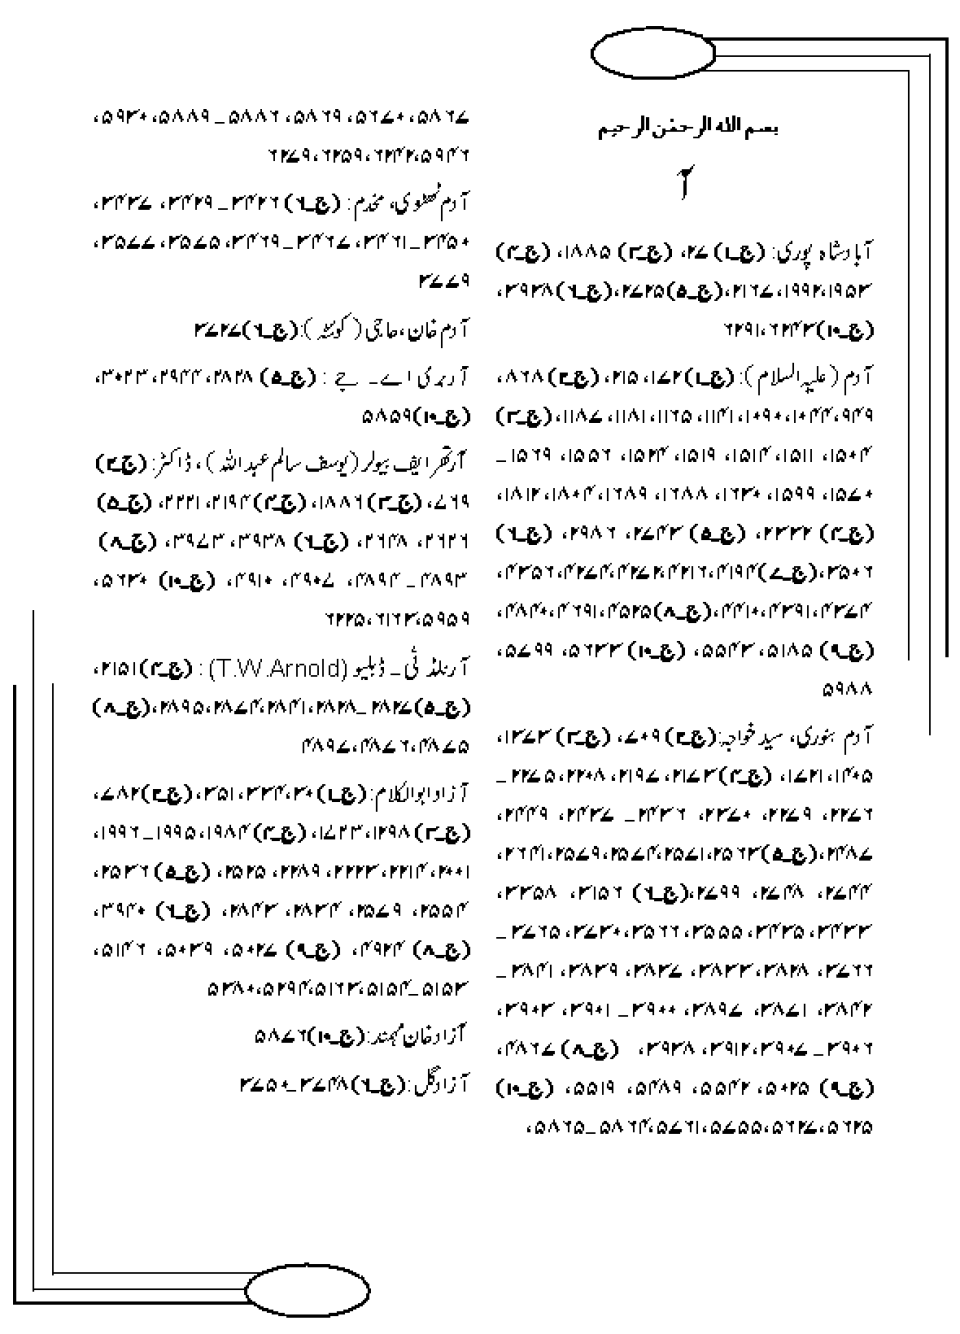 بسم اللہ الرحمٰن الرحیم
آ
آباد شاہ پوری: (ج۔۱) ۲۷، (ج۔۳) ۱۸۸۵، (ج۔۴)
۱۹۵۳،۱۹۹۲، ۲۱۶۷،(ج۔۵)۲۷۲۵،(ج۔۶)۳۹۳۸،
(ج۔۱۰)۶۲۴۳،۶۲۹۱
آدم (علیہ السلام): (ج۔۱)۱۷۲، ۲۱۵، (ج۔۲) ۸۶۸،
۹۴۹،۱۰۴۴، ۱۰۹۰، ۱۱۴۱، ۱۱۶۵، ۱۱۸۱، ۱۱۸۷،(ج۔۳)
۱۵۰۴، ۱۵۱۱، ۱۵۱۴، ۱۵۱۹، ۱۵۲۴، ۱۵۵۶، ۱۵۶۹ـ
۱۵۷۰، ۱۵۹۹، ۱۶۳۰، ۱۶۸۸، ۱۶۸۹، ۱۸۰۴، ۱۸۱۲،
(ج۔۴) ۲۳۳۲، (ج۔۵) ۲۷۴۳، ۲۹۸۶، (ج۔۶)
۳۵۰۶،(ج۔۷)۴۱۹۴،۴۲۱۶،۴۲۷۲،۴۲۷۴،۴۳۵۶،
۴۳۷۴،۴۳۹۱،۴۴۱۰،(ج۔۸)۴۵۲۵،۴۶۹۱،۴۸۴۰،
(ج۔۹) ۵۱۸۵، ۵۵۴۳، (ج۔۱۰) ۵۶۳۳، ۵۷۹۹،
۵۹۸۸
آدم بنوری، سید خواجہ:(ج۔۲) ۷۰۹، (ج۔۳) ۱۳۷۳،
۱۴۰۵،۱۷۲۱، (ج۔۴)۲۱۷۳، ۲۱۹۷، ۲۲۰۸،۲۲۷۵ـ
۲۲۷۶، ۲۲۷۹، ۲۳۷۰، ۲۴۳۶ـ ۲۴۳۷، ۲۴۴۹،
۲۴۸۷،(ج۔۵)۲۵۶۳،۲۵۷۱،۲۵۷۴،۲۵۷۹،۲۶۴۱،
۲۷۴۴، ۲۷۴۸، ۲۷۹۹،(ج۔۶) ۳۱۵۶، ۳۳۵۸،
۳۴۳۳،۳۴۳۵، ۳۵۵۵، ۳۵۶۶، ۳۷۳۰،۳۷۶۵ـ
۳۷۶۶، ۳۸۲۸، ۳۸۳۳، ۳۸۳۷، ۳۸۳۹، ۳۸۴۱ـ
۳۸۴۲، ۳۸۷۱، ۳۸۹۷، ۳۹۰۰ـ ۳۹۰۱، ۳۹۰۳،
۳۹۰۶ـ ۳۹۰۷،۳۹۱۲، ۳۹۳۸، (ج۔۸) ۴۸۶۷،
(ج۔۹) ۵۰۲۵، ۵۵۴۲، ۵۴۸۹، ۵۵۱۹، (ج۔۱۰)
۵۶۲۵،۵۶۲۷،۵۷۵۵،۵۷۶۱،۵۸۶۴ـ۵۸۶۵،
۵۸۶۷، ۵۶۷۰، ۵۸۶۹، ۵۸۸۶ـ ۵۸۸۹، ۵۹۳۰،
۵۹۴۶،۶۲۴۲،۶۲۵۹،۶۲۷۹
آدم ٹھٹوی، مخدوم: (ج۔۶) ۳۴۲۶ـ ۳۴۲۹، ۳۴۳۷،
۳۴۵۰ـ۳۴۶۱، ۳۴۶۷ـ۳۴۶۹،۳۵۷۵، ۳۵۷۷،
۳۷۷۹
آدم خان، حاجی (کوئٹہ):(ج۔۶)۳۷۲۷
آربری اے۔ جے : (ج۔۵) ۲۸۲۸، ۲۹۴۴، ۳۰۲۳،
(ج۔۱۰)۵۸۵۹
آرتھر ایف بیولر(یوسف سالم عبداللہ)، ڈاکٹر: (ج۲)
۷۶۹، (ج۔۳)۱۸۸۶، (ج۔۴)۲۱۹۴، ۲۲۲۱، (ج۔۵)
۲۶۲۶، ۲۶۴۸، (ج۔۶) ۳۹۳۸، ۳۹۷۳، (ج۔۸)
۴۸۹۳ـ ۴۸۹۴، ۴۹۰۷، ۴۹۱۰، (ج۔۱۰) ۵۶۳۰،
۵۹۵۹،۶۱۶۳،۶۲۲۵
آرنلڈ ٹی۔ ڈبلیو (T.W.Arnold): (ج۔۴)۲۱۵۱،
(ج۔۵)۲۸۲۷ـ۲۸۲۸،۲۸۴۱،۲۸۷۴،۲۸۹۵،(ج۔۸)
۴۸۷۵،۴۸۷۶،۴۸۹۷
آزاد ابوالکلام:(ج۔۱)۳۰،۳۳۴، ۳۵۱،(ج۔۲)۷۸۲،
(ج۔۳)۱۲۹۸، ۱۷۲۳،(ج۔۴)۱۹۸۴، ۱۹۹۵ـ۱۹۹۶،
۲۰۰۱، ۲۲۱۴، ۲۲۲۳، ۲۲۸۹، ۲۵۲۵، (ج۔۵)۲۵۳۶،
۲۵۵۴، ۲۵۷۹، ۲۸۳۴، ۲۸۴۳، (ج۔۶) ۳۹۴۰،
(ج۔۸) ۴۹۲۴، (ج۔۹) ۵۰۲۷، ۵۰۳۹، ۵۱۴۶،
۵۱۵۳ـ۵۱۵۴،۵۱۶۳،۵۲۹۴،۵۳۸۰
آزاد خان مہمند:(ج۔۱۰)۵۸۷۶
آزاد گل: (ج۔۶)۳۷۴۸ـ۳۷۵۰